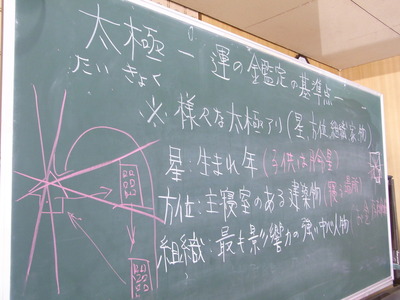 太極 — 運の鑑定の基準点 —
たい きょく
※ 様々な太極アリ(星、方位、組織、家、物)
星：生まれ年(子供は月命星)
方位：主寝室のある建築物(寝る場所)
組織：最も影響力の強い中心人物(